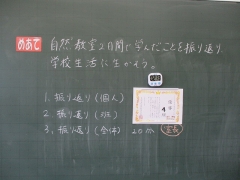 めあて 自然教室2日間で学んだことを振り返り、
学校生活に生かそう。
1. 振り返り(個人)
2. 振り返り(班)
3. 振り返り(全体) 20m